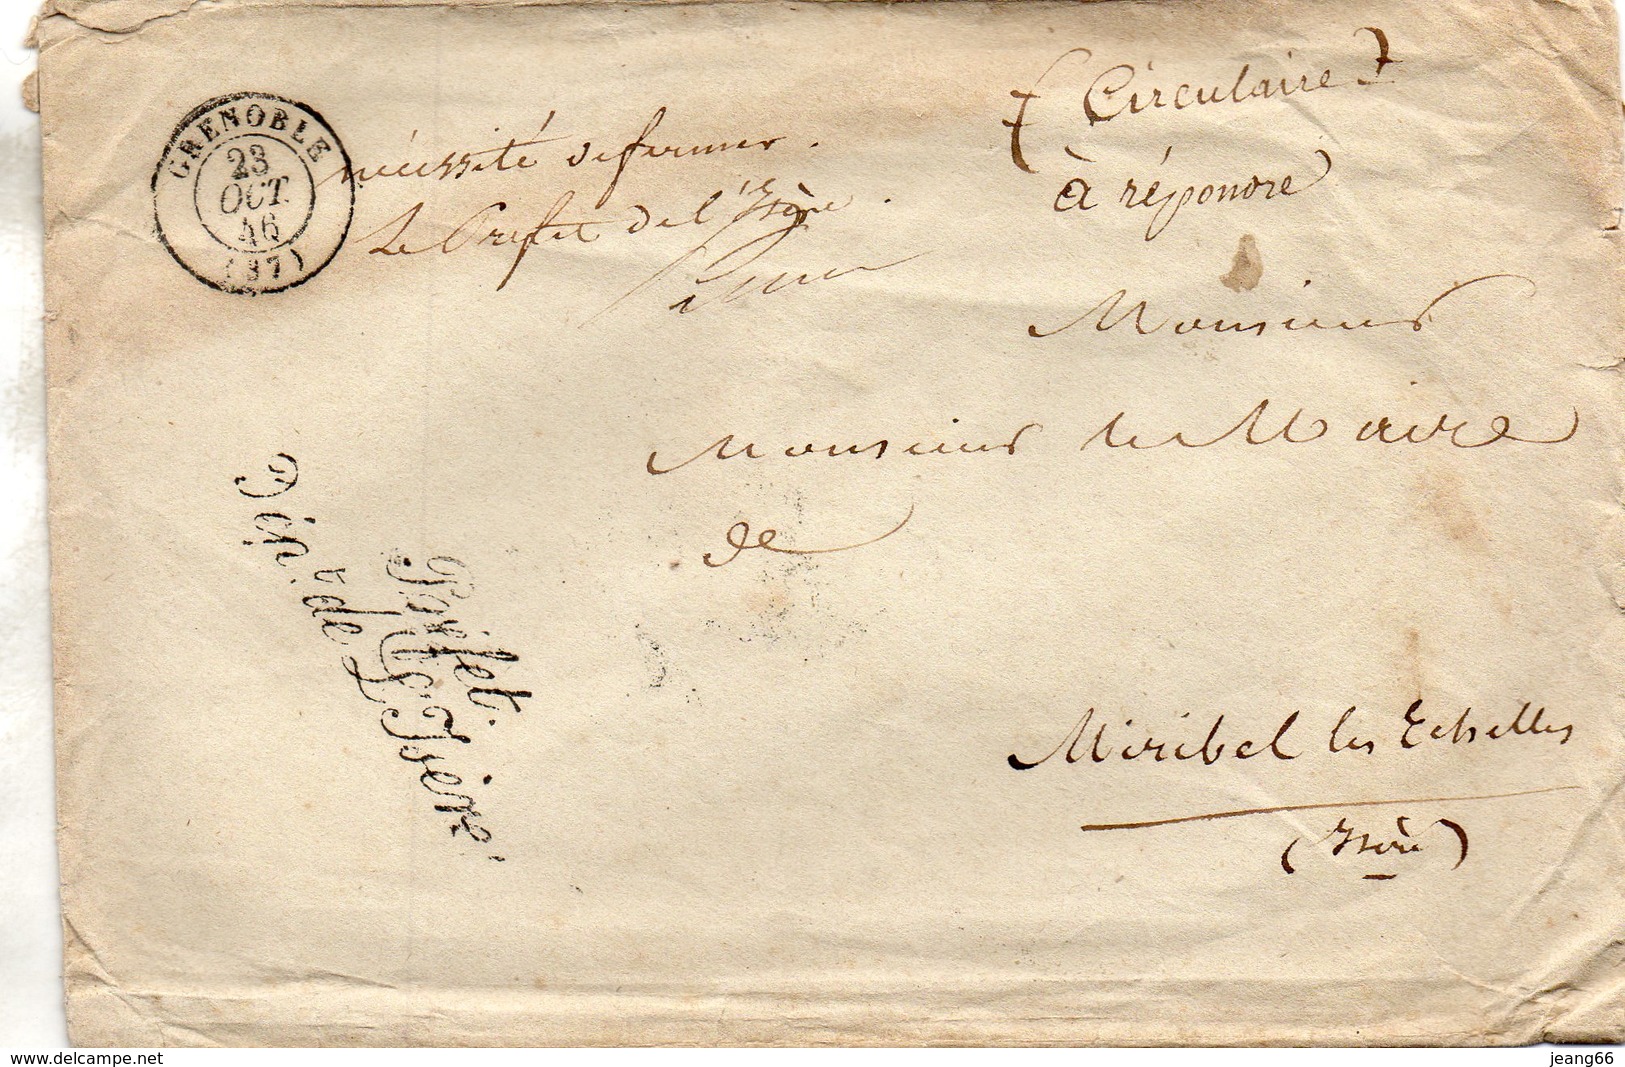 GRENOBLE
23
OCT.
46
(37)
nécessité de fermer.
Le Préfet de l'Isère.
(Circulaire)
à répondre
Monsieur
Monsieur le Maire
de
Préfet.
Dép.t de L'Isère
Miribel les Echelles
(Isère)
www.delcampe.net
jeang66